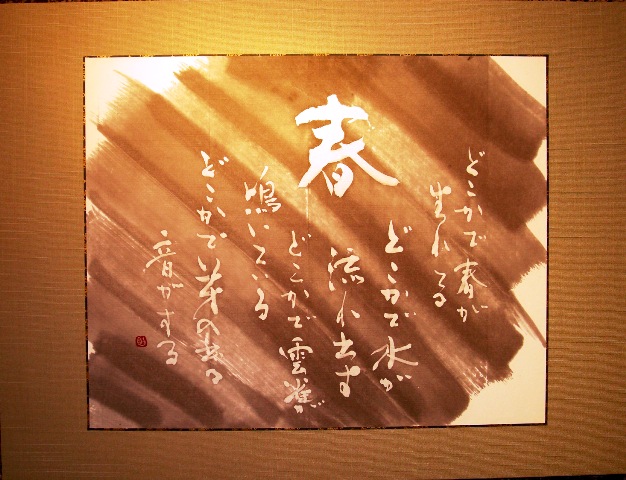 春
どこかで春が
生れてる
どこかで水が
流れ出す
どこかで雲雀が
鳴いている
どこかで芽の出る
音がする